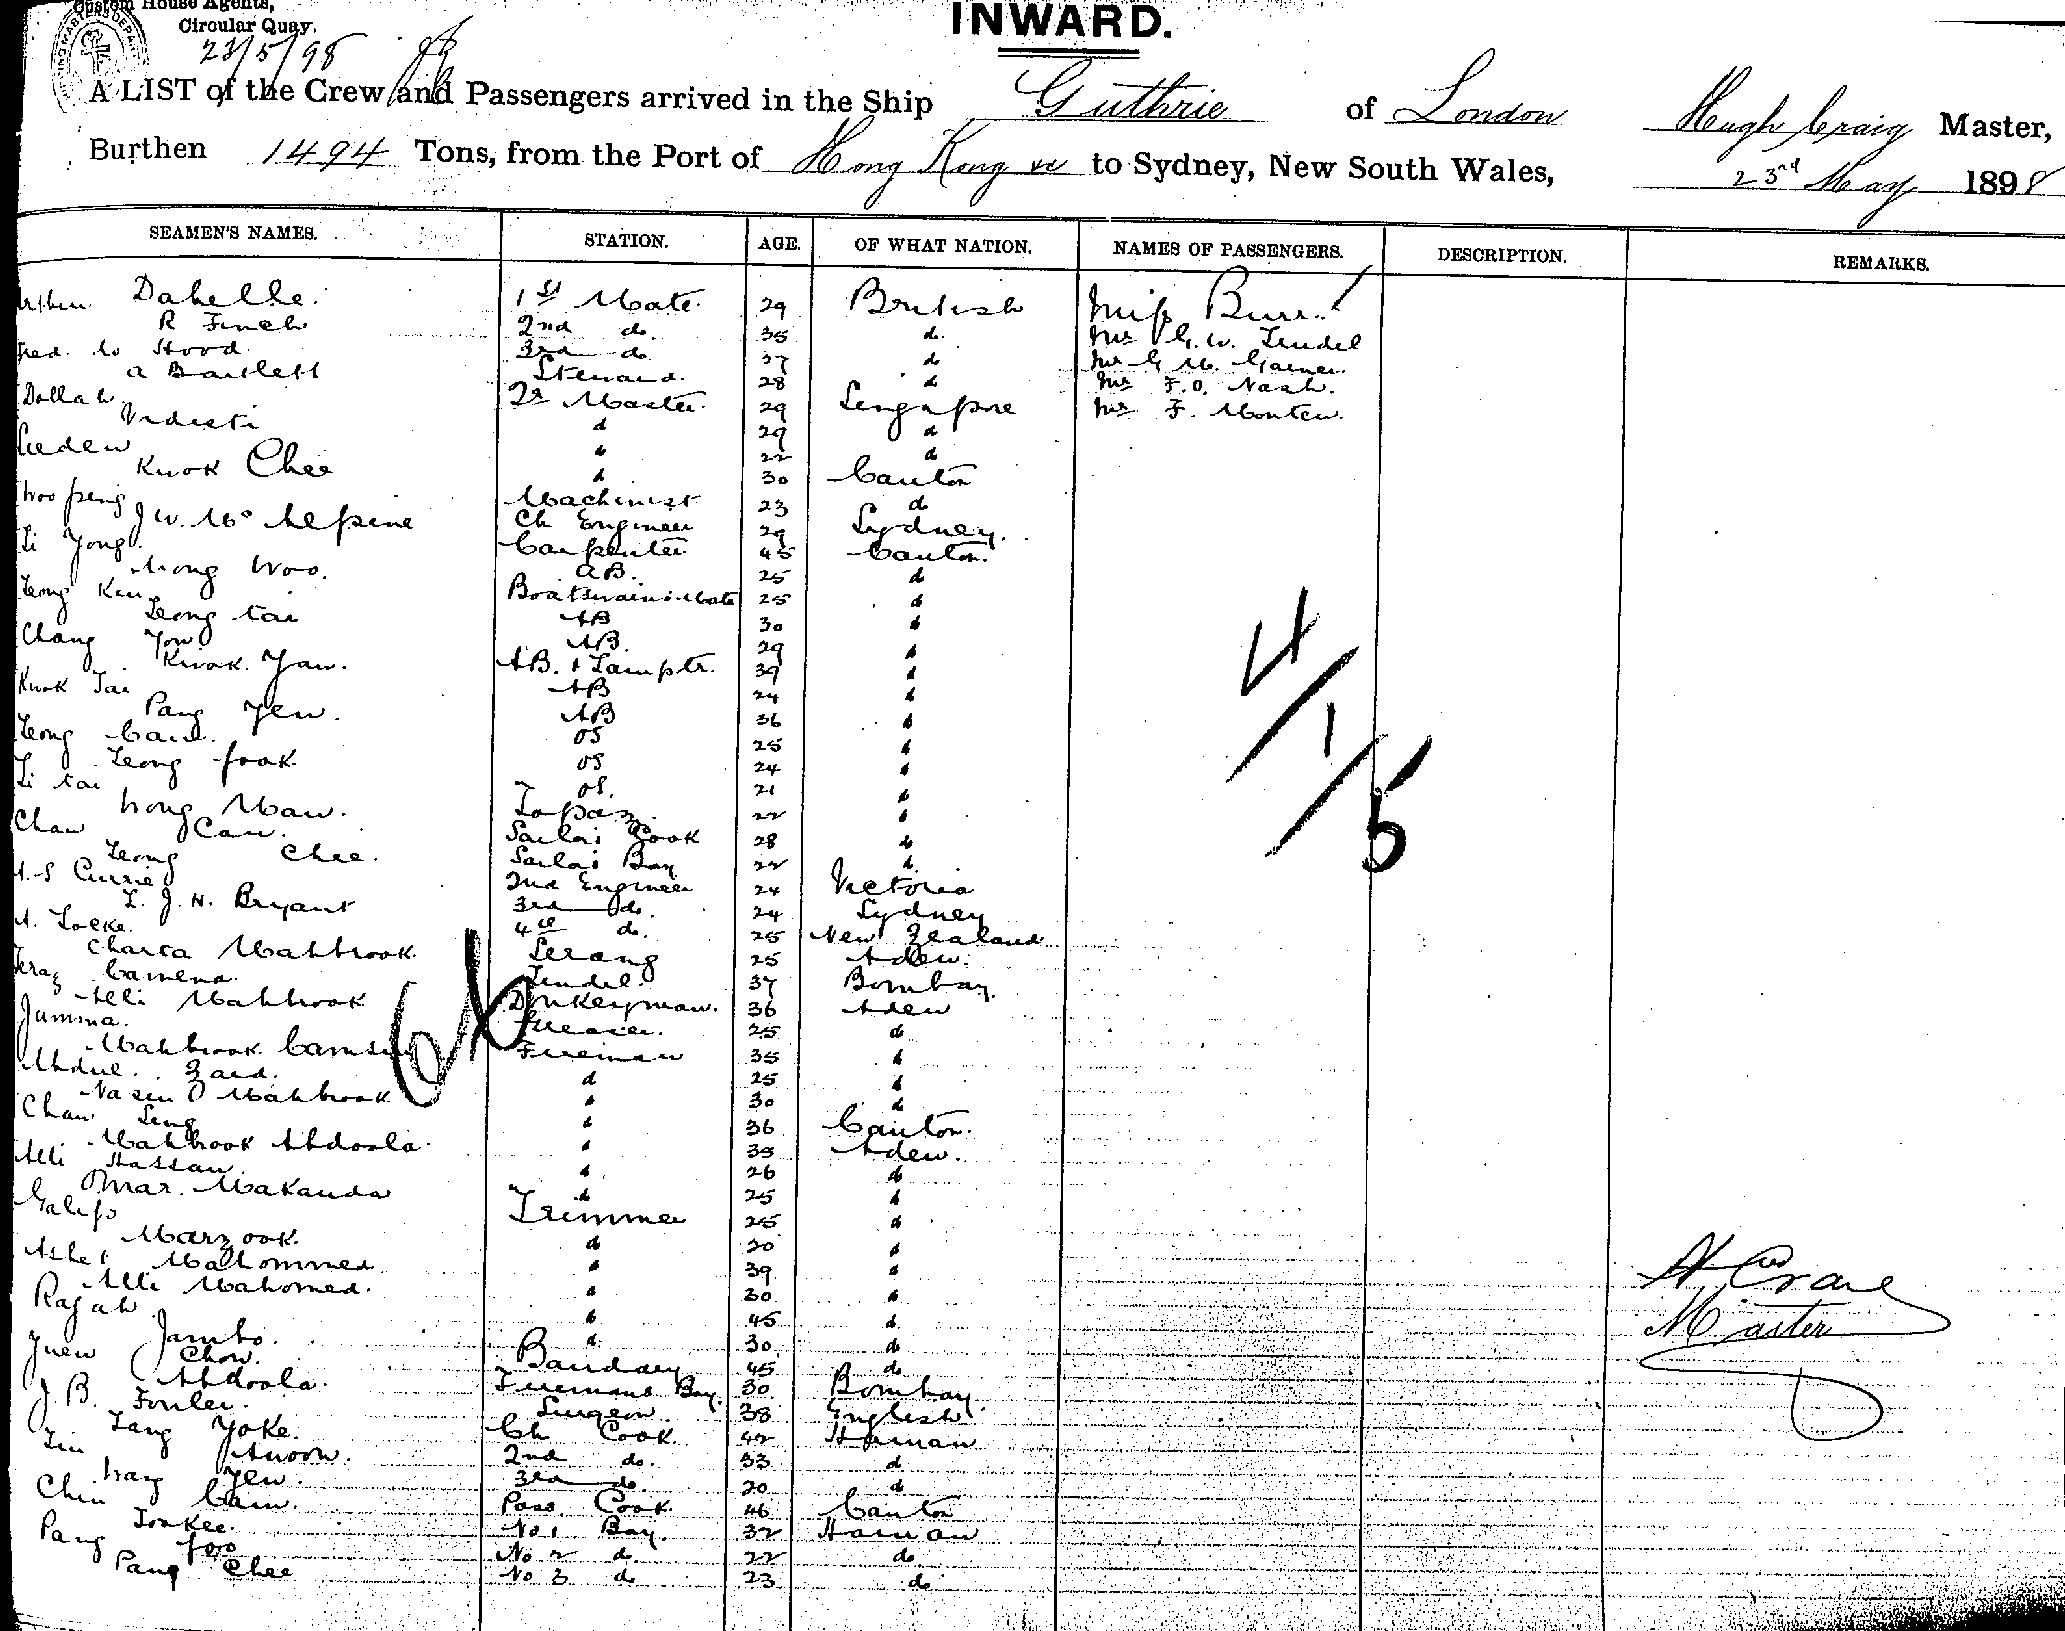 Custom House Agents,
Circular Quay.
23/5/98
INWARD.
A LIST of the Crew and Passengers arrived in the Ship Guthrie of London Hugh Craig Master,
Burthen 1494 Tons, from the Port of Hong Kong to Sydney, New South Wales, 23rd May 1898
SEAMEN'S NAMES. STATION. AGE. OF WHAT NATION. NAMES OF PASSENGERS. DESCRIPTION. REMARKS.
1st Mate 29 British Miss Burr
R Finch 2nd do 35 do Mr G. W.
Hood 3rd do 37 do Mr G
A Bartlett Steward 28 do Mr F. O. Nash.
Dollah Qr Master 29 Singapore Mr F.
do 29 do
do 22 do
Kwok Chee do 30 Canton
Woo Peng Machinist 23 do
J W. McAlpine Ch Engineer 29 Sydney.
Li Yong Carpenter 45 Canton.
Wong Woo. AB. 25 do
Leong Kin Boatswains Mate 25 do
Leong tai AB 30 do
Chang Yow AB. 29 do
Kwok Yaw. AB. & Lamptr. 39 do
Kwok Tai AB 24 do
Pang Yew. AB 36 do
Leong OS 25 do
Leong fook OS 24 do
Li tai OS. 21 do
Wong Maw. Topaz 22 do
Chan Can. Sailors Cook 28 do
Leong Chee. Sailors Boy 22 do
A. S Currie 2nd Engineer 24 Victoria
L. J. H. Bryant 3rd do. 24 Sydney
A. Locke. 4th do. 25 New Zealand
Mahbrook Serang 25 Aden.
Tindel. 37 Bombay.
Alli Mahbrook Donkeyman. 36 Aden
Jumma. Greaser. 25 do
Mahbrook Fireman 35 do
Abdul Zaid. do 25 do
Mahbrook do 30 do
Chan Seng do 36 Canton.
Mahbrook Abdoola do 35 Aden.
Alli Hassan. do 26 do
Omar Makanda do 25 do
Trimmer 25 do
Marzook. do 30 do
Mahommed do 39 do
Alli Mahomed. do 30 do
Rajah do 45 do
Jambo. do 30 do
Yuen Chow. 45 do
Abdoola. Firemans Boy. 30 Bombay.
J. B. Fowler. Surgeon 38 English
Tang Yoke. Ch Cook. 42 Hainan
Lin Ahoon. 2nd do. 33 do
Yew. 3rd do 20 do
Chin Cam. Pass. Cook. 46 Canton
No 1 Boy. 32 Hainan
Pang foo No 2 do 22 do
Pang Chee No 3 do 23 do
4/1/5
H Craig
Master